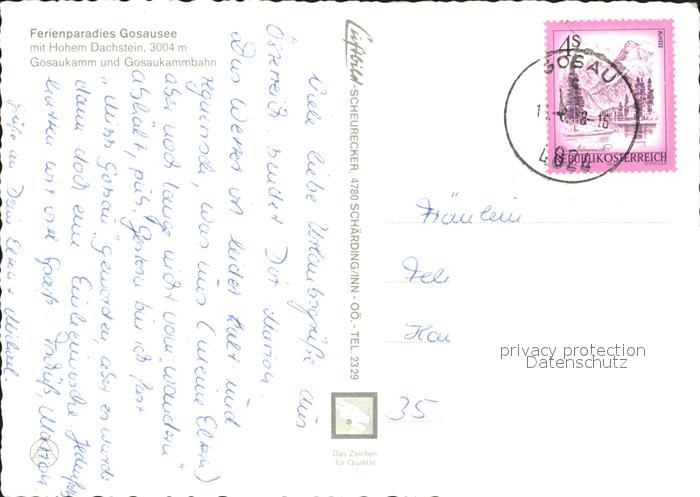 Ferienparadies Gosausee
mit Hohem Dachstein, 3004 m
Gosaukamm und Gosaukammbahn
Viele liebe Urlaubsgrüße aus
Österreich sendet Dir Marion.
Das Wetter ist leider kalt und
regnerisch, was uns (meine Eltern)
aber noch lange nicht vom "wandern"
abhält, puh! Gestern bin ich fast
"Miss Gosau" geworden aber es wurde
dann doch eine Einheimische. Jedenfalls
hatten wir viel Spaß. Marion.
Grüße an Dein Eltern Michael.
Luftbild-SCHEURECKER, 4780 SCHÄRDING/INN - OÖ. - TEL. 2329
Das Zeichen
für Qualität
4S
ALMSEE
REPUBLIK ÖSTERREICH
GOSAU
4824
Fräulein
35
privacy protection
Datenschutz